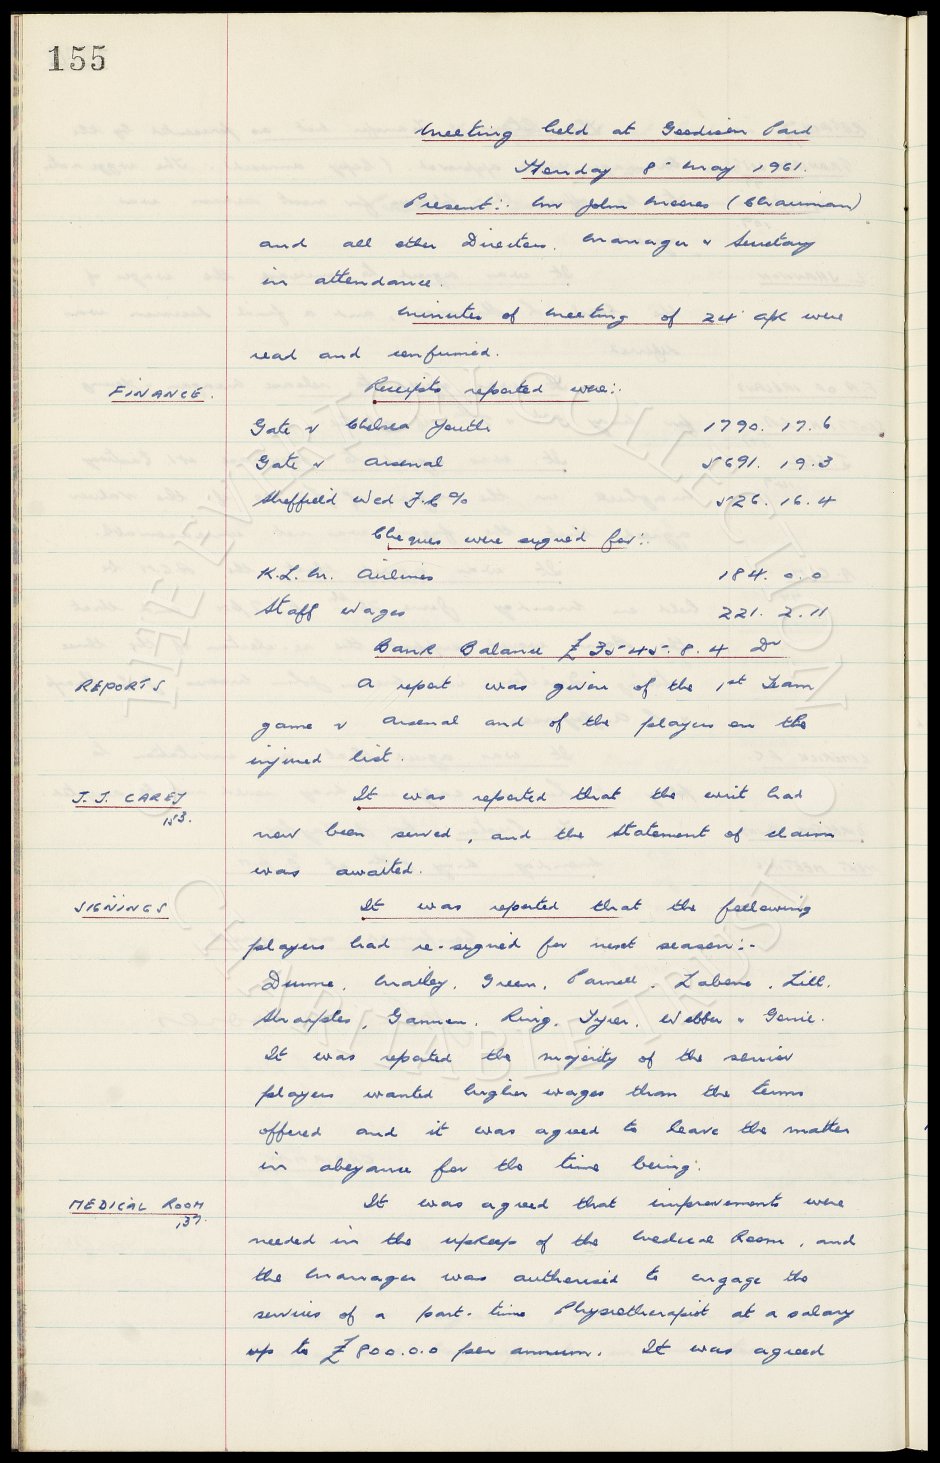 155
Meeting held at Goodison Park
Monday 8th May 1961.
Present:- Mr John Moores (Chairman)
and all other Directors. Manager & Secretary
in attendance.
Minutes of meeting of 24 Apl were
read and confirmed.
FINANCE. Receipts reported were:-
Gate v Chelsea Youth 1790. 17. 6
Gate v Arsenal 5691. 19. 3
Sheffield Wed F.C % 526. 16. 4
Cheques were signed for:-
K.L.M. Airlines 184. 0. 0
Staff Wages 221. 2. 11
Bank Balance £3545. 8. 4 Dr
REPORTS A report was given of the 1st Team
game v Arsenal and of the players on the
injured list.
J. J. CAREY It was reported that the writ had
153.
now been served, and the statement of claim
was awaited.
SIGNINGS It was reported that the following
players had re-signed for next season:-
Dunne. Mailey. Green. Parnell. Labone. Lill.
Sharples. Gannon. King. Tyrer. Webber & Genie.
It was reported the majority of the senior
players wanted higher wages than the terms
offered and it was agreed to leave the matter
in abeyance for the time being.
MEDICAL ROOM It was agreed that improvements were
137.
needed in the upkeep of the Medical Room, and
the Manager was authorised to engage the
services of a part-time Physiotherapist at a salary
up to £800.0.0 per annum. It was agreed